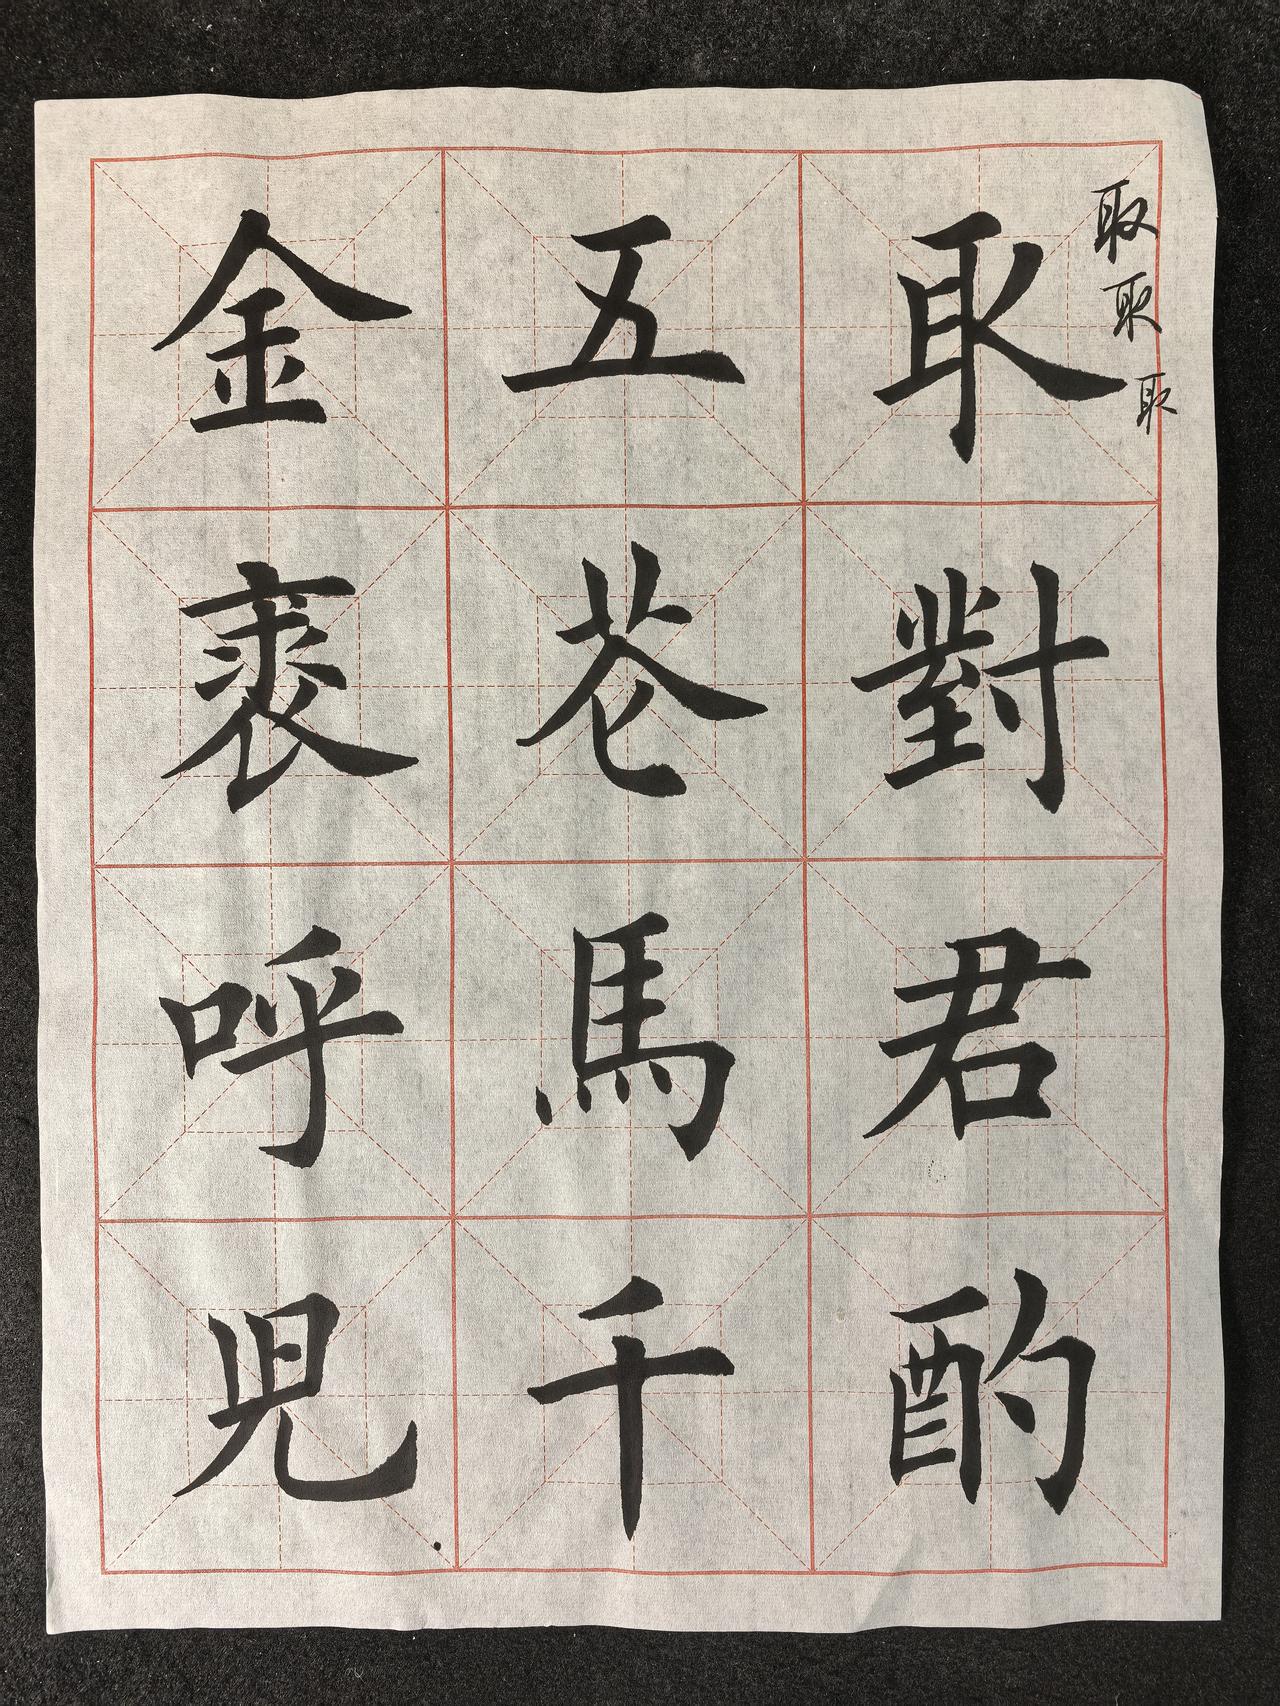 取取取
取對君酌
五花馬千
金裘呼児